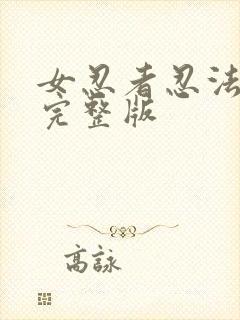 女忍者忍法
完整版
高詠